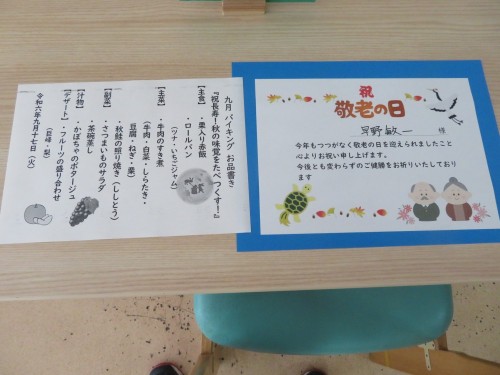 九月 バイキング お品書き
『祝長寿！秋の味覚をたべつくす！』
【主食】・栗入り赤飯
・ロールパン
（ツナ・いちごジャム）
【主菜】
・牛肉のすき煮
（牛肉・白菜・しらたき・
豆腐・ねぎ・麩）
・秋鮭の照り焼き（ししとう）
【副菜】・さつまいものサラダ
・茶碗蒸し
【汁物】・かぼちゃのポタージュ
【デザート】・フルーツの盛り合わせ
（巨峰・梨）
令和六年九月十七日（火）
祝
敬老の日
敏一 様
今年もつつがなく敬老の日を迎えられましたこと
心よりお祝い申し上げます。
今後とも変わらずのご健勝をお祈りいたしており
ます